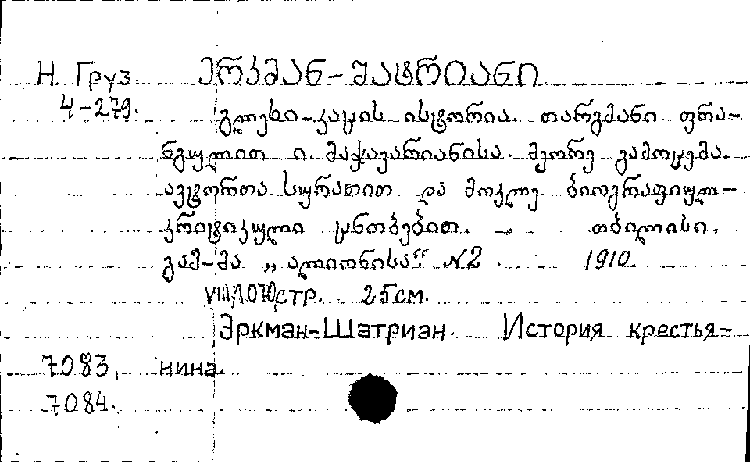 Н. Груз ერკმან-შატრიანი
4-279. გლეხი-კაცის ისტორია. თარგმანი ფრა-
ნგულით ი. მაჭავარიანისა. მეორე გამოცემა.
ავტორთა სურათით და მოკლე ბიოგრაფიულ-
კრიტიკული ცნობებით. - თბილისი.
გამ-მა „ალიონისა“ №2 1910
VIII, стр. 25см.
Эркман-Шатриан. История крестья-
7083, нина.
7084.